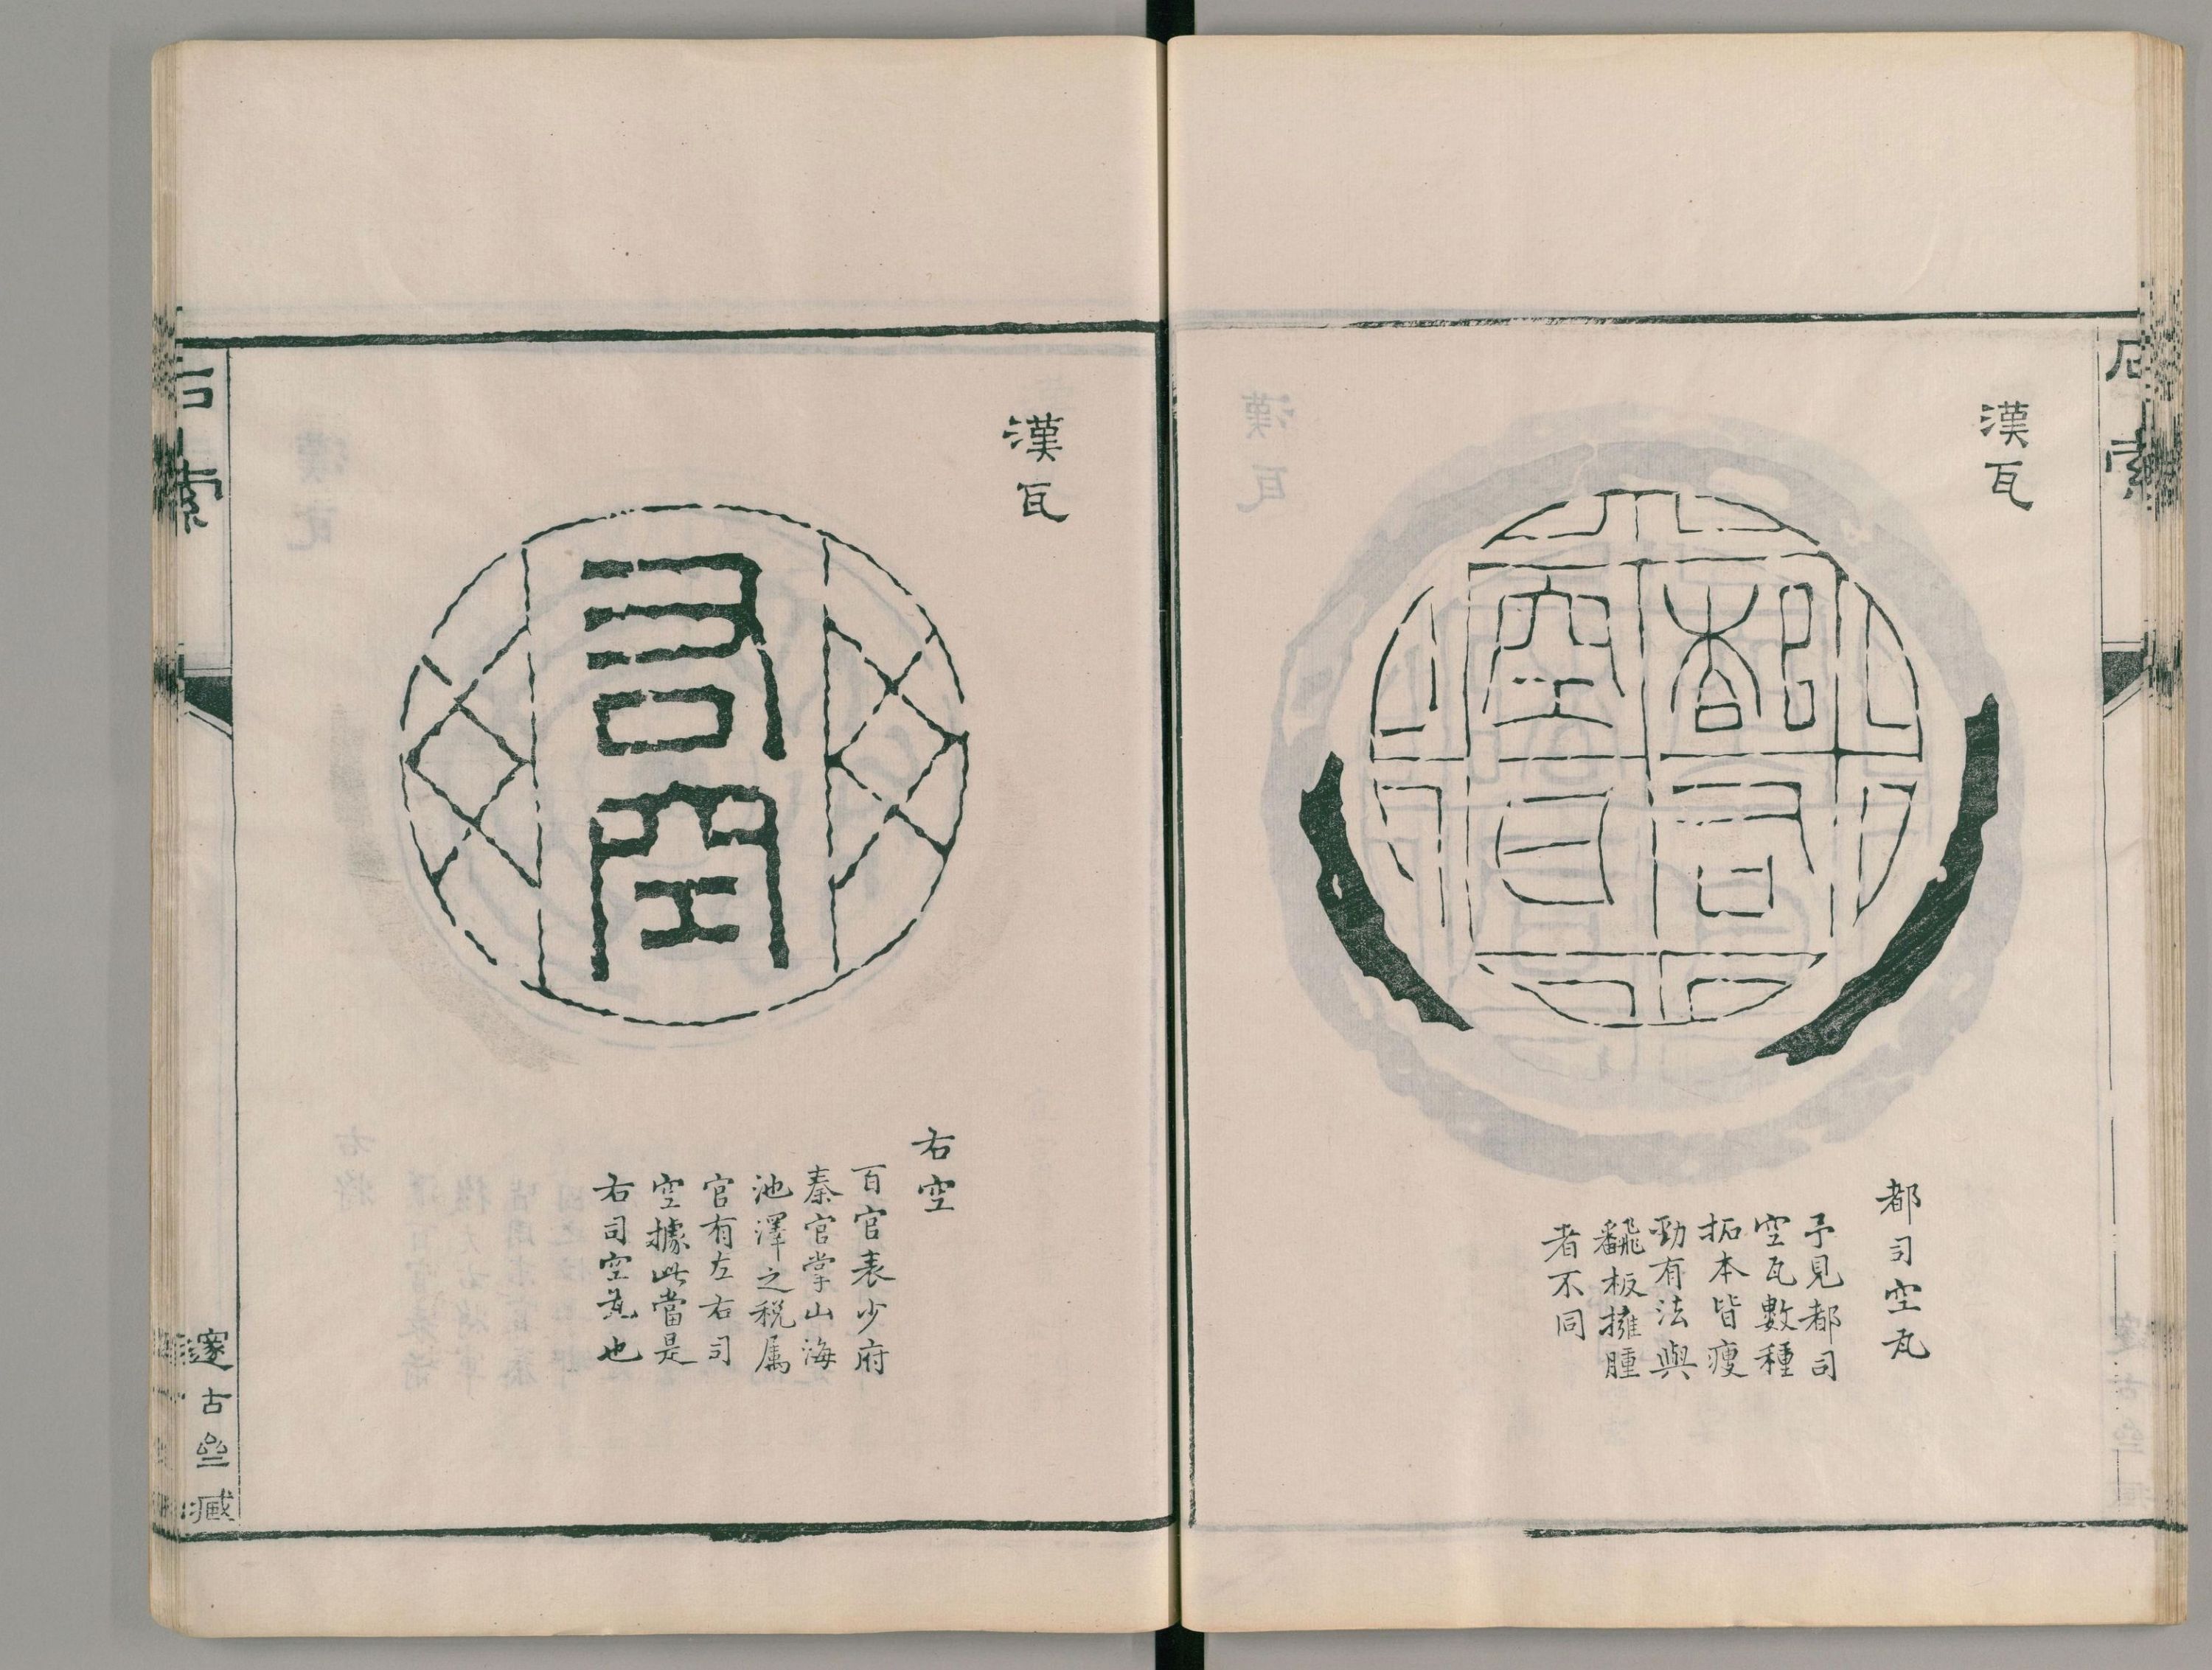 石索
漢瓦
都司
空瓦
都司空瓦
予見都司
空瓦數種
拓本皆瘦
勁有法與
飜板擁腫
者不同
漢瓦
右空
右空
百官表少府
秦官掌山海
池澤之税属
官有左右司
空據此當是
右司空瓦也
石索
邃古亝藏